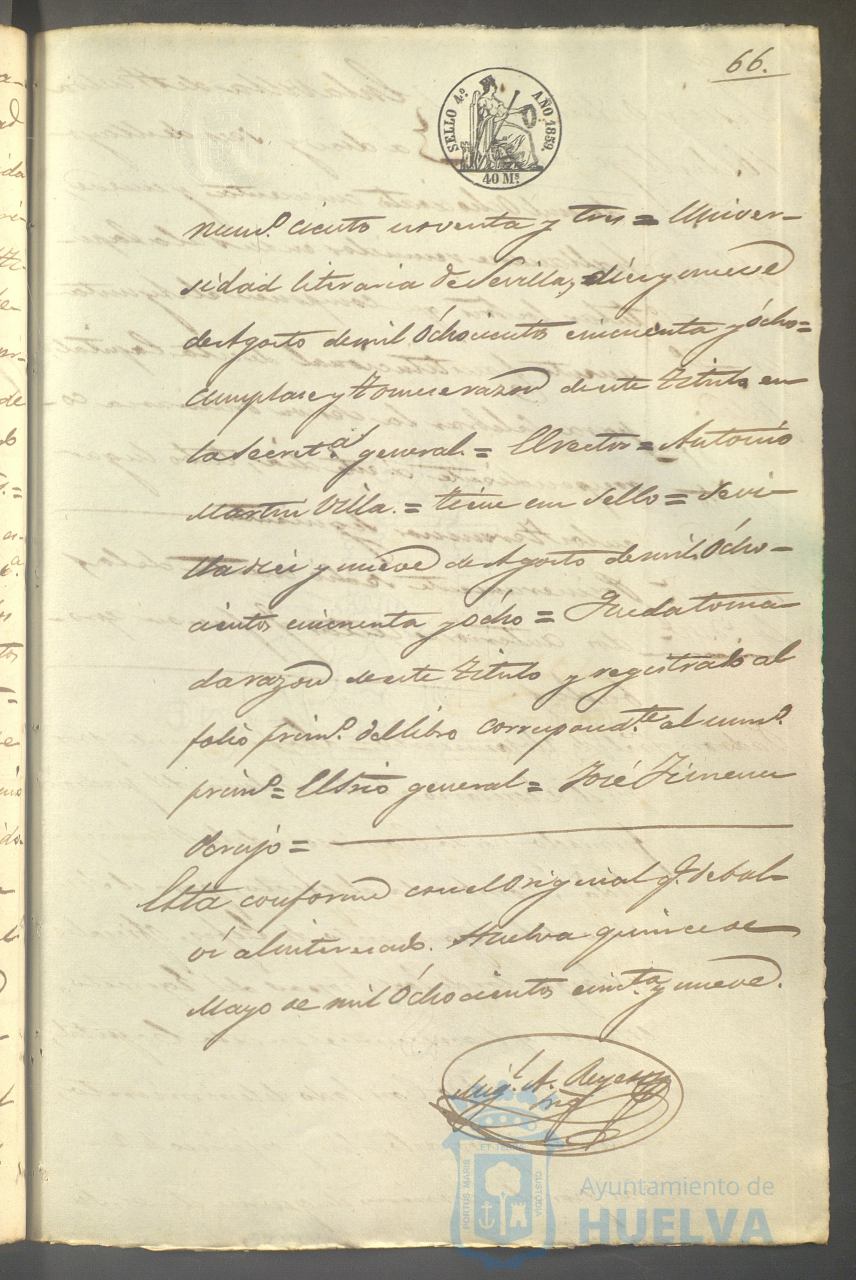 66.
SELLO 4.º AÑO 1859.
40 Ms.
num.º ciento noventa y tres = Univer-
sidad literaria de Sevilla, diez y nueve
de Agosto de mil Ochocientos cincuenta y Ócho =
Cumplase y Tomese razon de este Titulo en
la Secret.ª general. = El rector = Antonio
Martin Villa. = tiene un Sello = Sevi-
lla diez y nueve de Agosto de mil Ócho-
cientos cincuenta y ócho = Queda toma-
da razon de este Titulo y registrado al
folio prim.º del libro correspond.te al num.º
prim.º = El Srio general = José Jimenez
Está conforme con el Original q.e debol-
ví al interesado. Huelva quince de
Mayo de mil Ochocientos cinc.ta y nueve.
Mig.l A. Reyes
PORTUS MARIS
ET TERRE
CUSTODIA
Ayuntamiento de
HUELVA